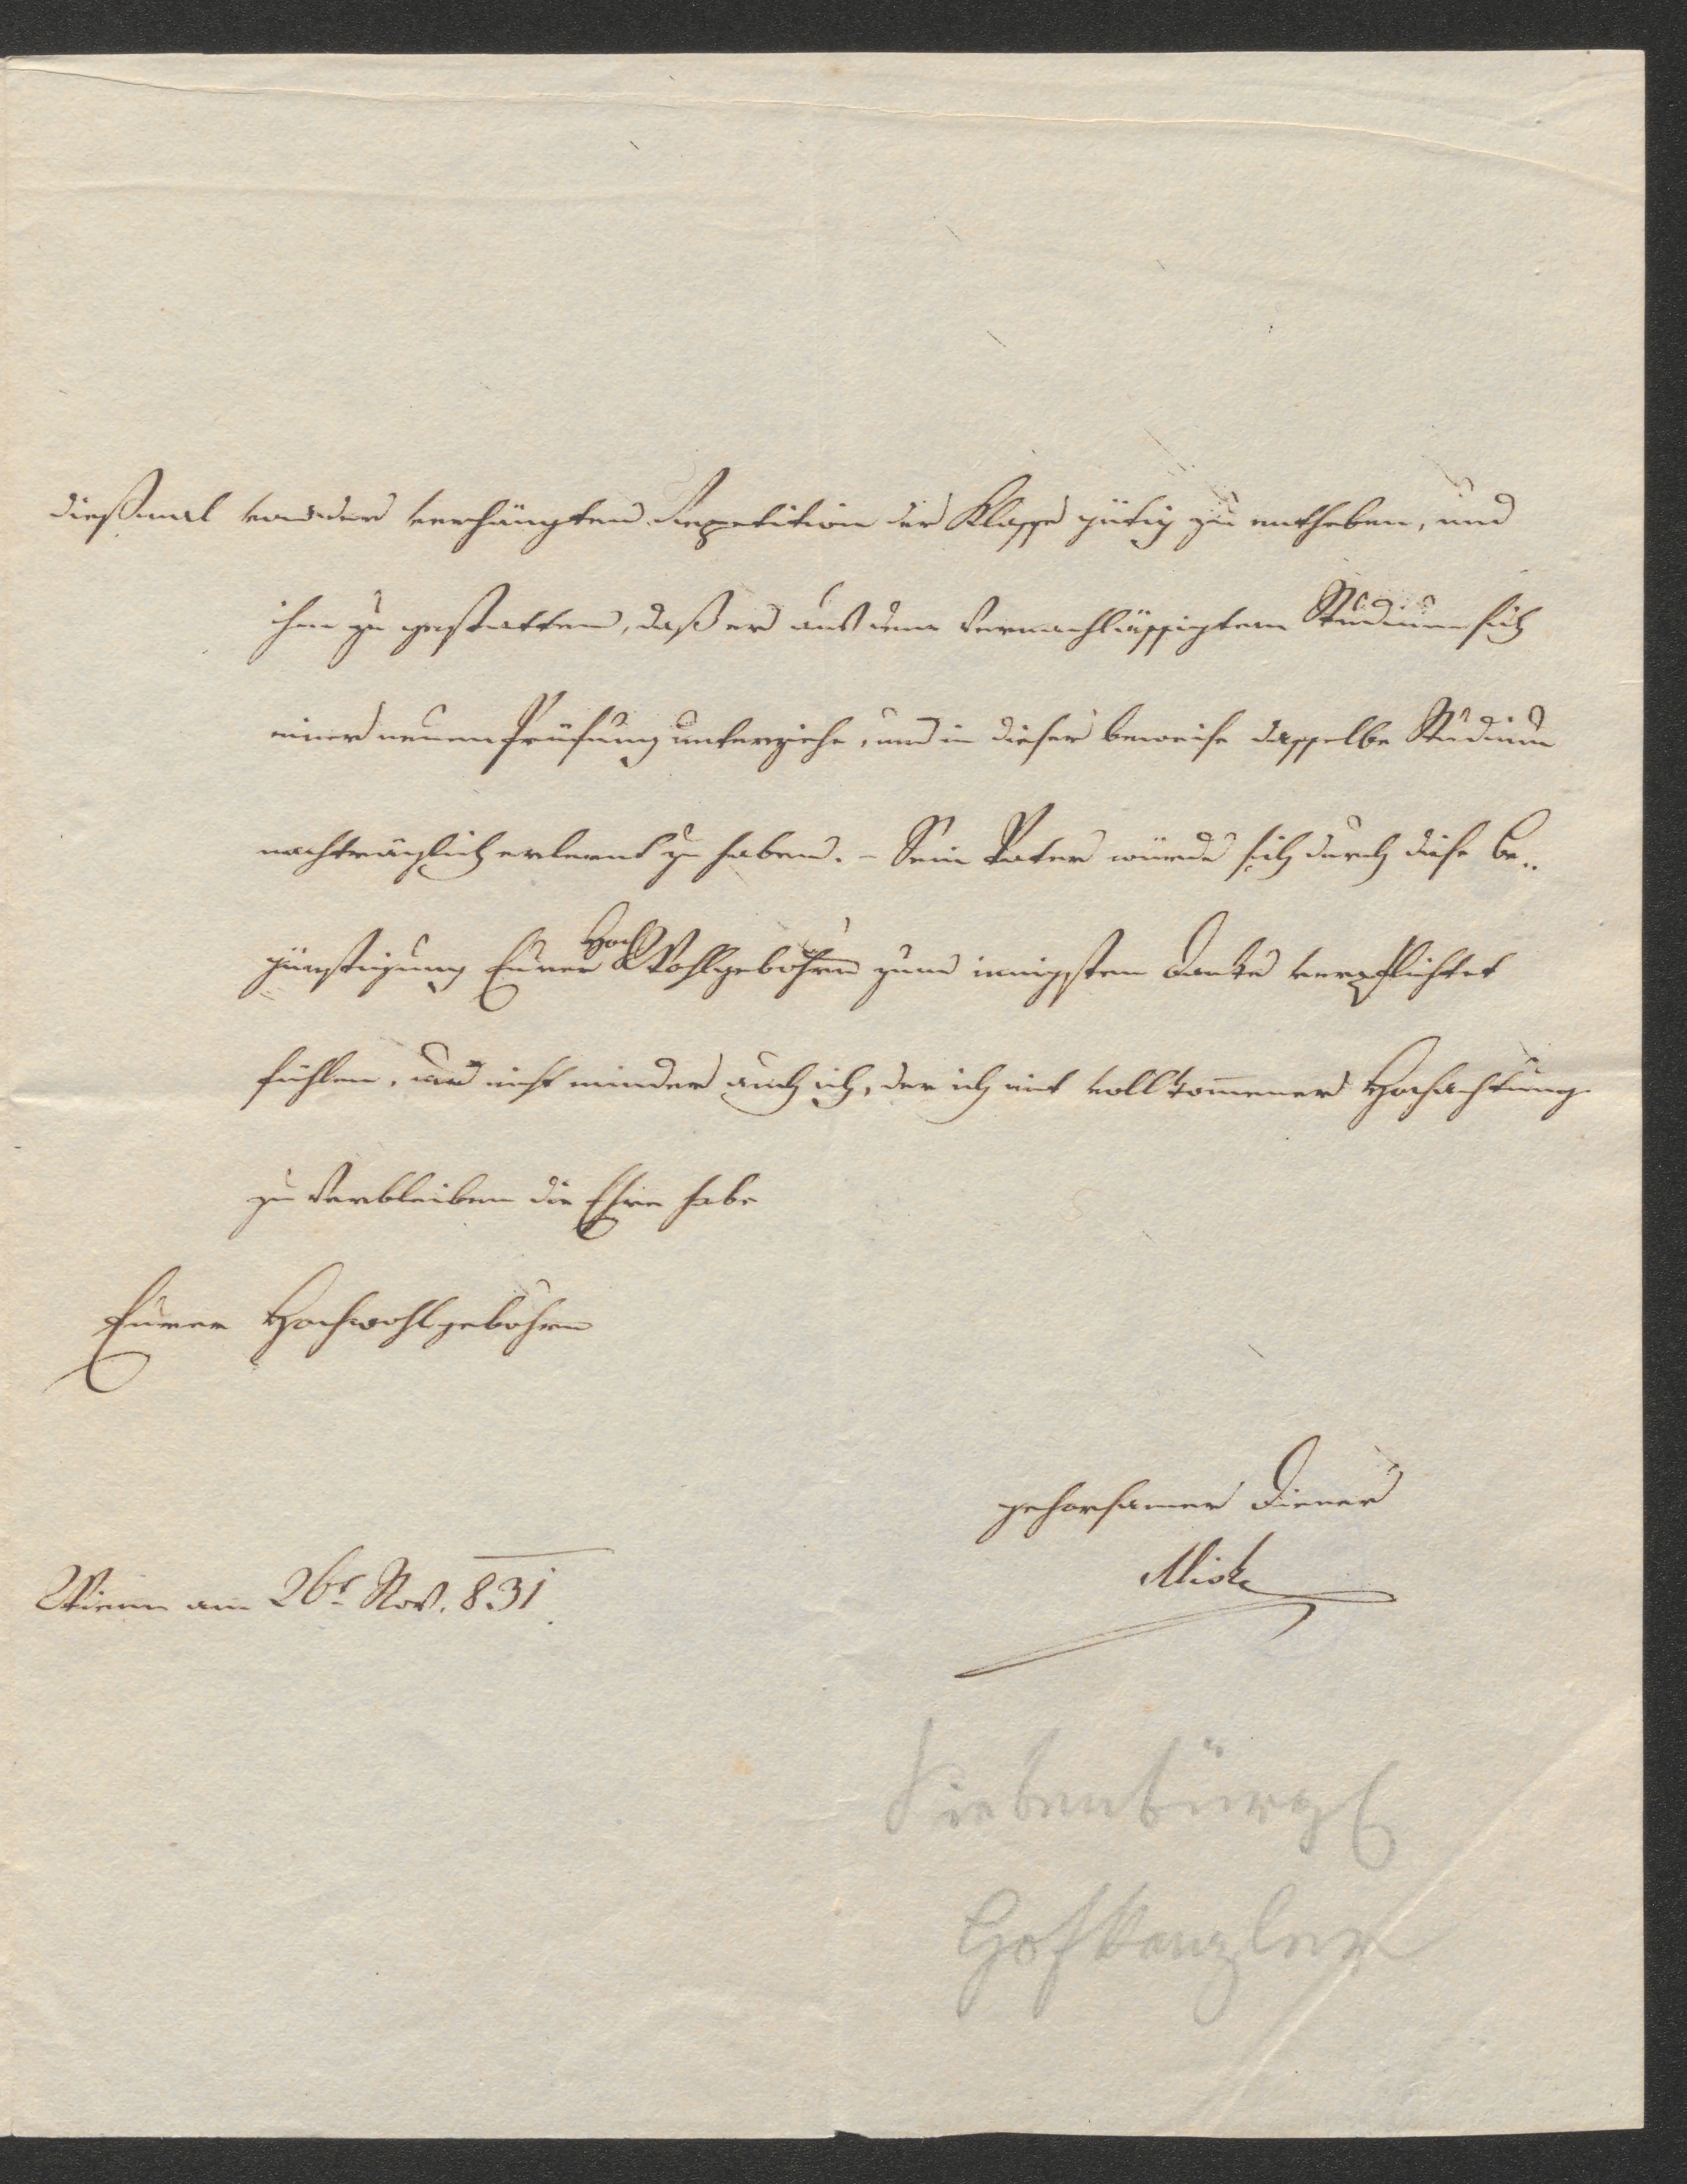 dießmal von der verhängten Repetition der Klasse gütig zu entheben, und
ihm zu gestatten, daß er aus dem vernachlässigtem Studium sich
einer neuen Prüfung unterziehe, und in dieser beweise dasselbe Studium
nachträglich erlernt zu haben. – Sein Vater würde sich durch diese Be-
günstigung Eurer Hoch Wohlgebohrn zum innigsten Danke verpflichtet
fühlen, und nicht minder auch ich, der ich mit vollkommener Hochachtung
zu verbleiben die Ehre habe
Eurer Hochwohlgebohrn
gehorsamer Diener
Miske
Wienn am 26t Nov. 831.
Siebenbürg
Hofkanzler